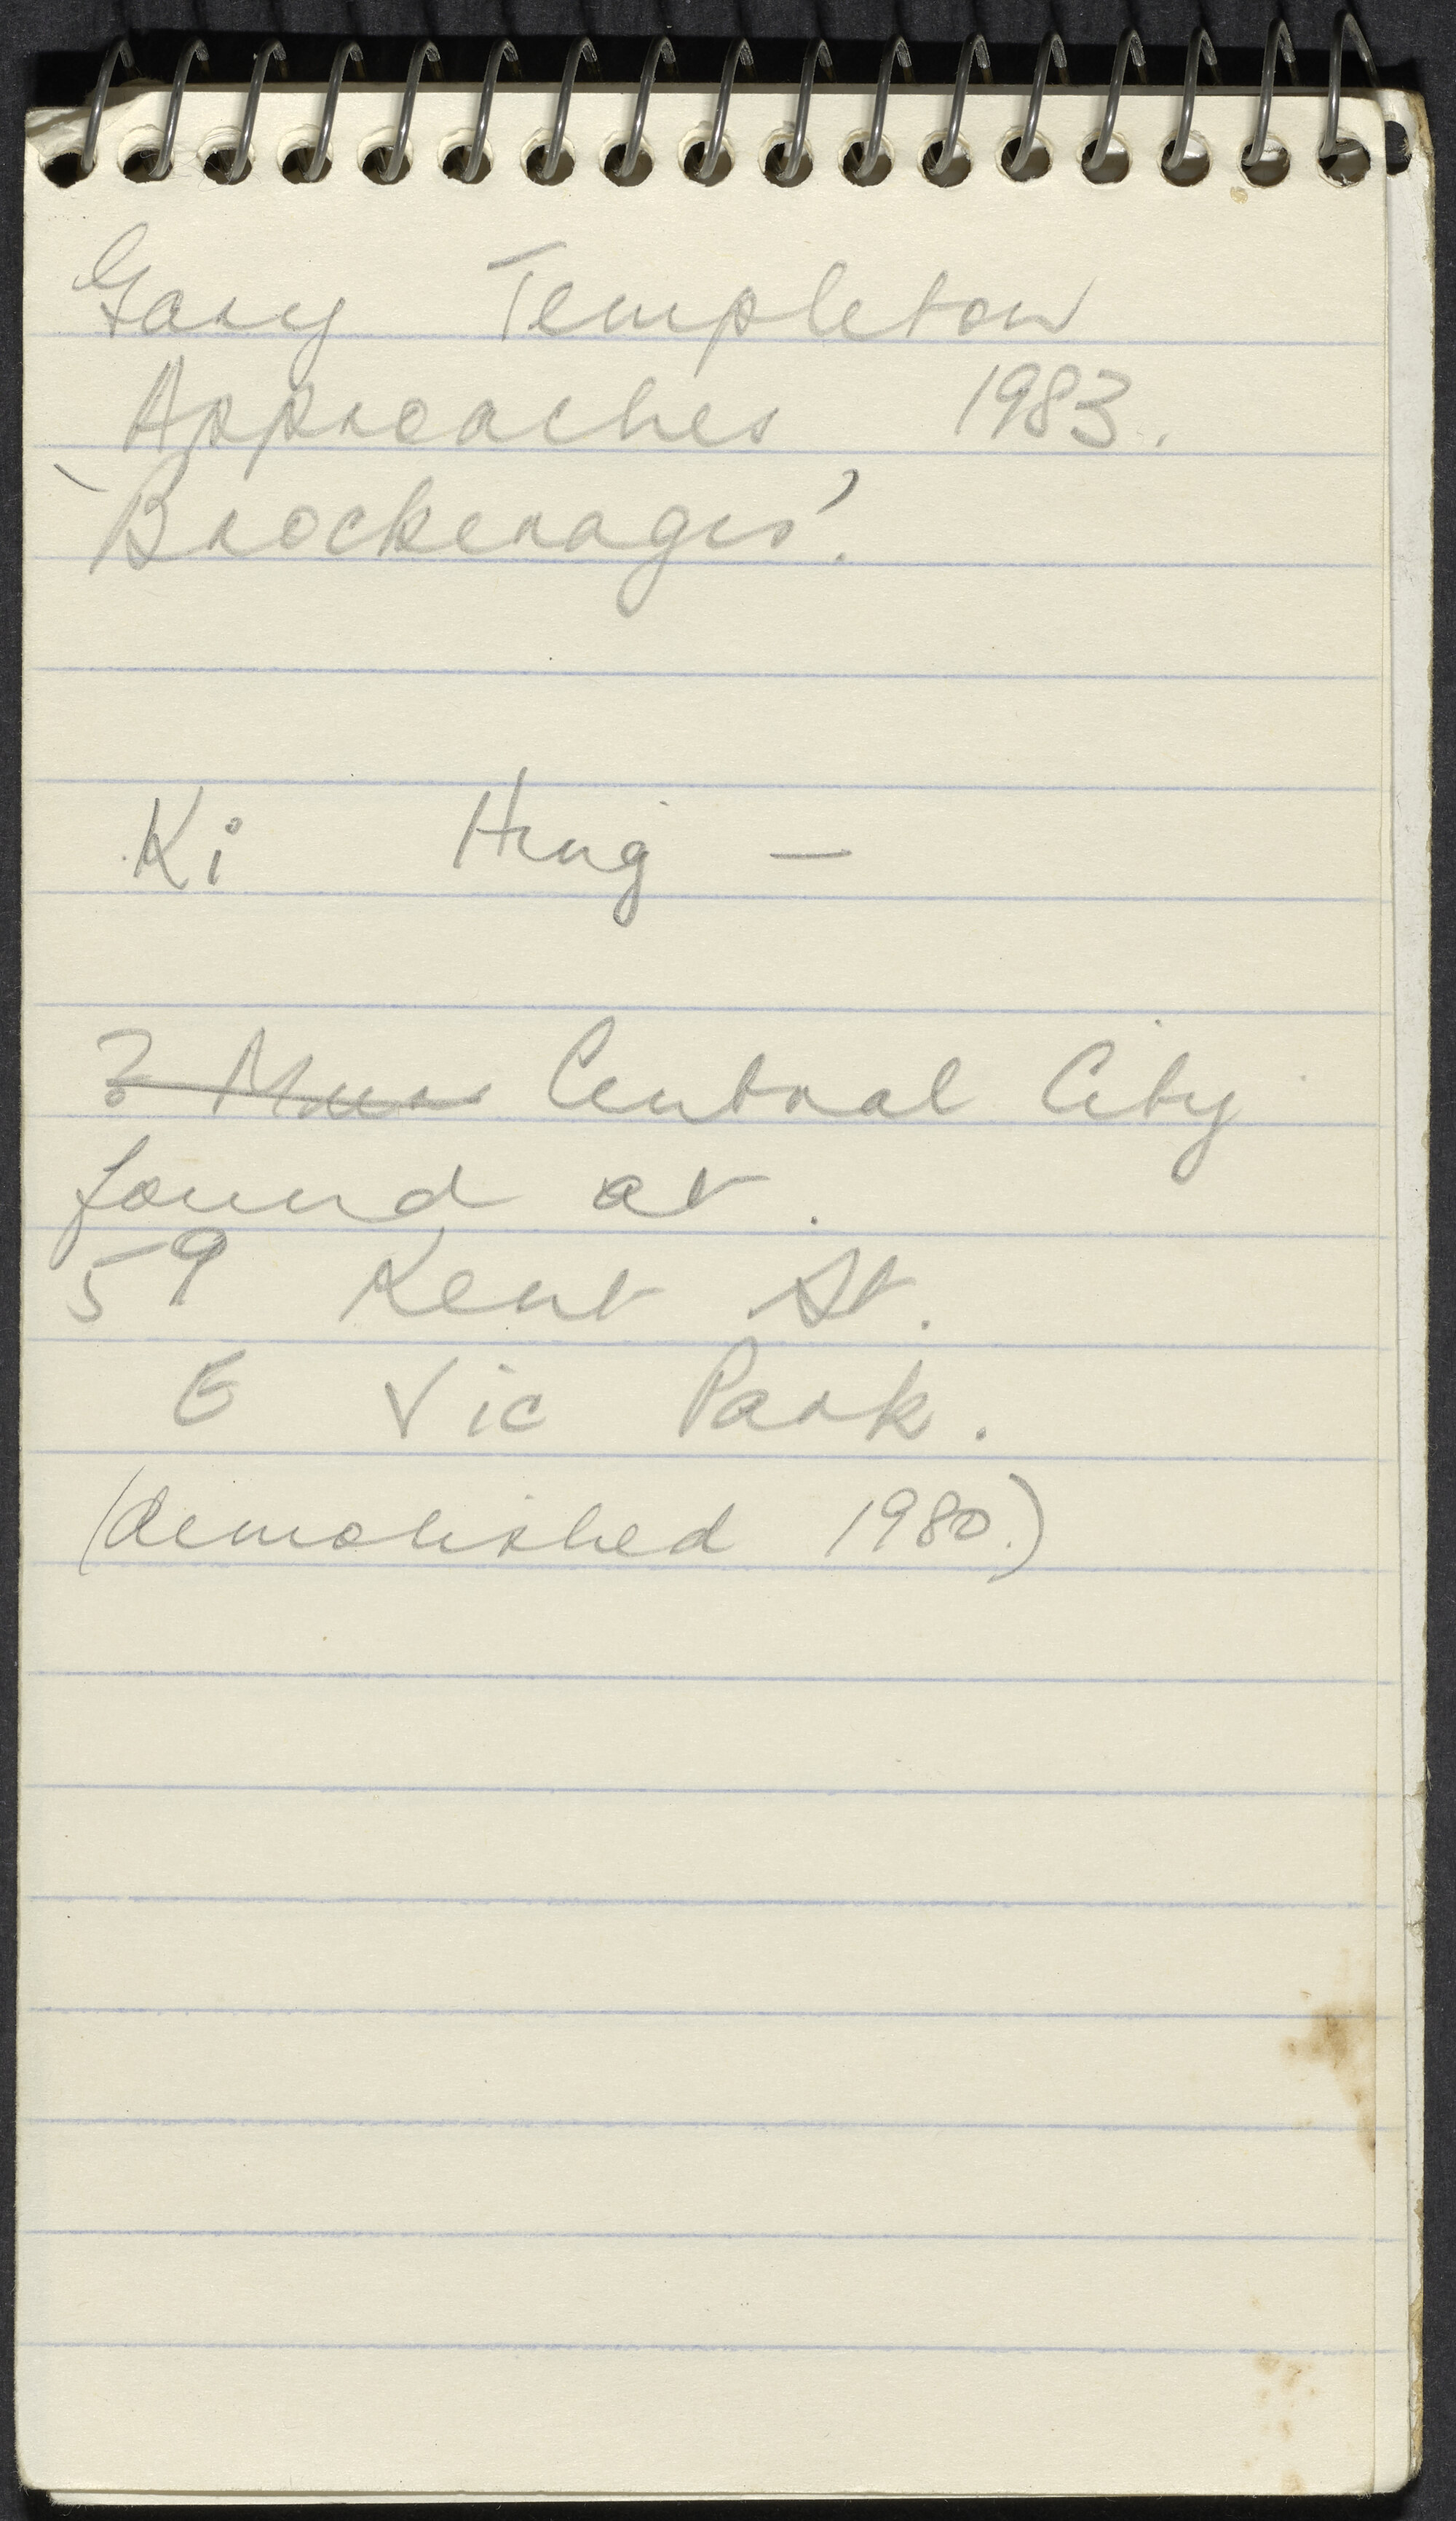 Gary Templeton
Approaches 1983.
'Brockerages'.
Ki Hing —
? Central City
found at.
59 Kent St.
E Vic Park.
(demolished 1980.)